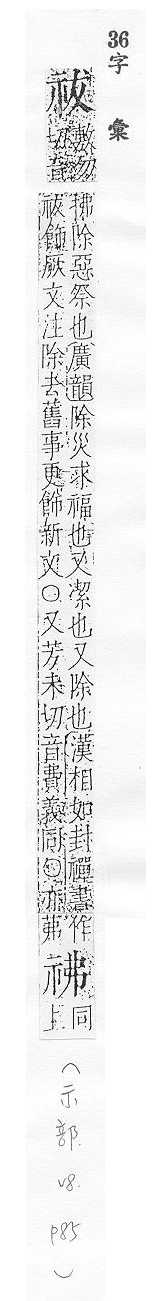 36字彙
祓
敷勿
切音
拂除惡祭也廣韻除災求福也又潔也又除也漢相如封禪書作
祓飾厥文注除去舊事更飾新文〇又芳未切音費義同〇亦
弗
𥙄同
上
(示部 v8. p85)